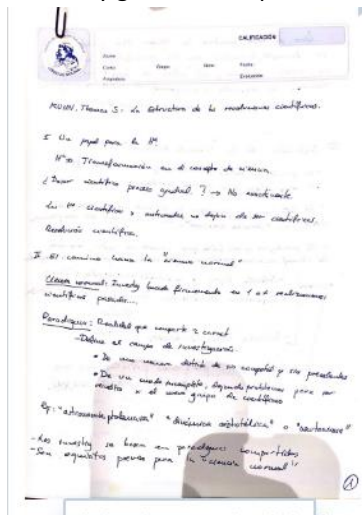 CALIFICACIÓN
Curso
Grupo
Fecha
Asignatura
Evaluación
KUHN, Thomas S. - La estructura de las revoluciones científicas.
I Un papel para la Hª
Hª → Transformación en el concepto de ciencia.
¿ científico proceso gradual? → No
científica.
II El camino hacia la "ciencia normal"
Ciencia normal: Investig basada firmemente en 1 o + realizaciones
científicas pasadas...
Paradigma: Realidad que comparte 2 caract
- Define el campo de investigación.
• De una manera distinta de sus y sin precedentes
• De un modo incompleto, dejando problemas para ser
grupo de científicos
Ej: "astronomía ptolemaica" "dinámica aristotélica" o "newtoniana"
- Las investig se basan en paradigmas compartidos
- Son requisitos previos para la "ciencia normal"
1